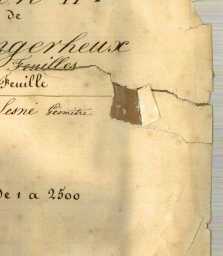 de
ngerheux
Feuilles
Feuille
Lesné Géomètre
de 1 a 2500